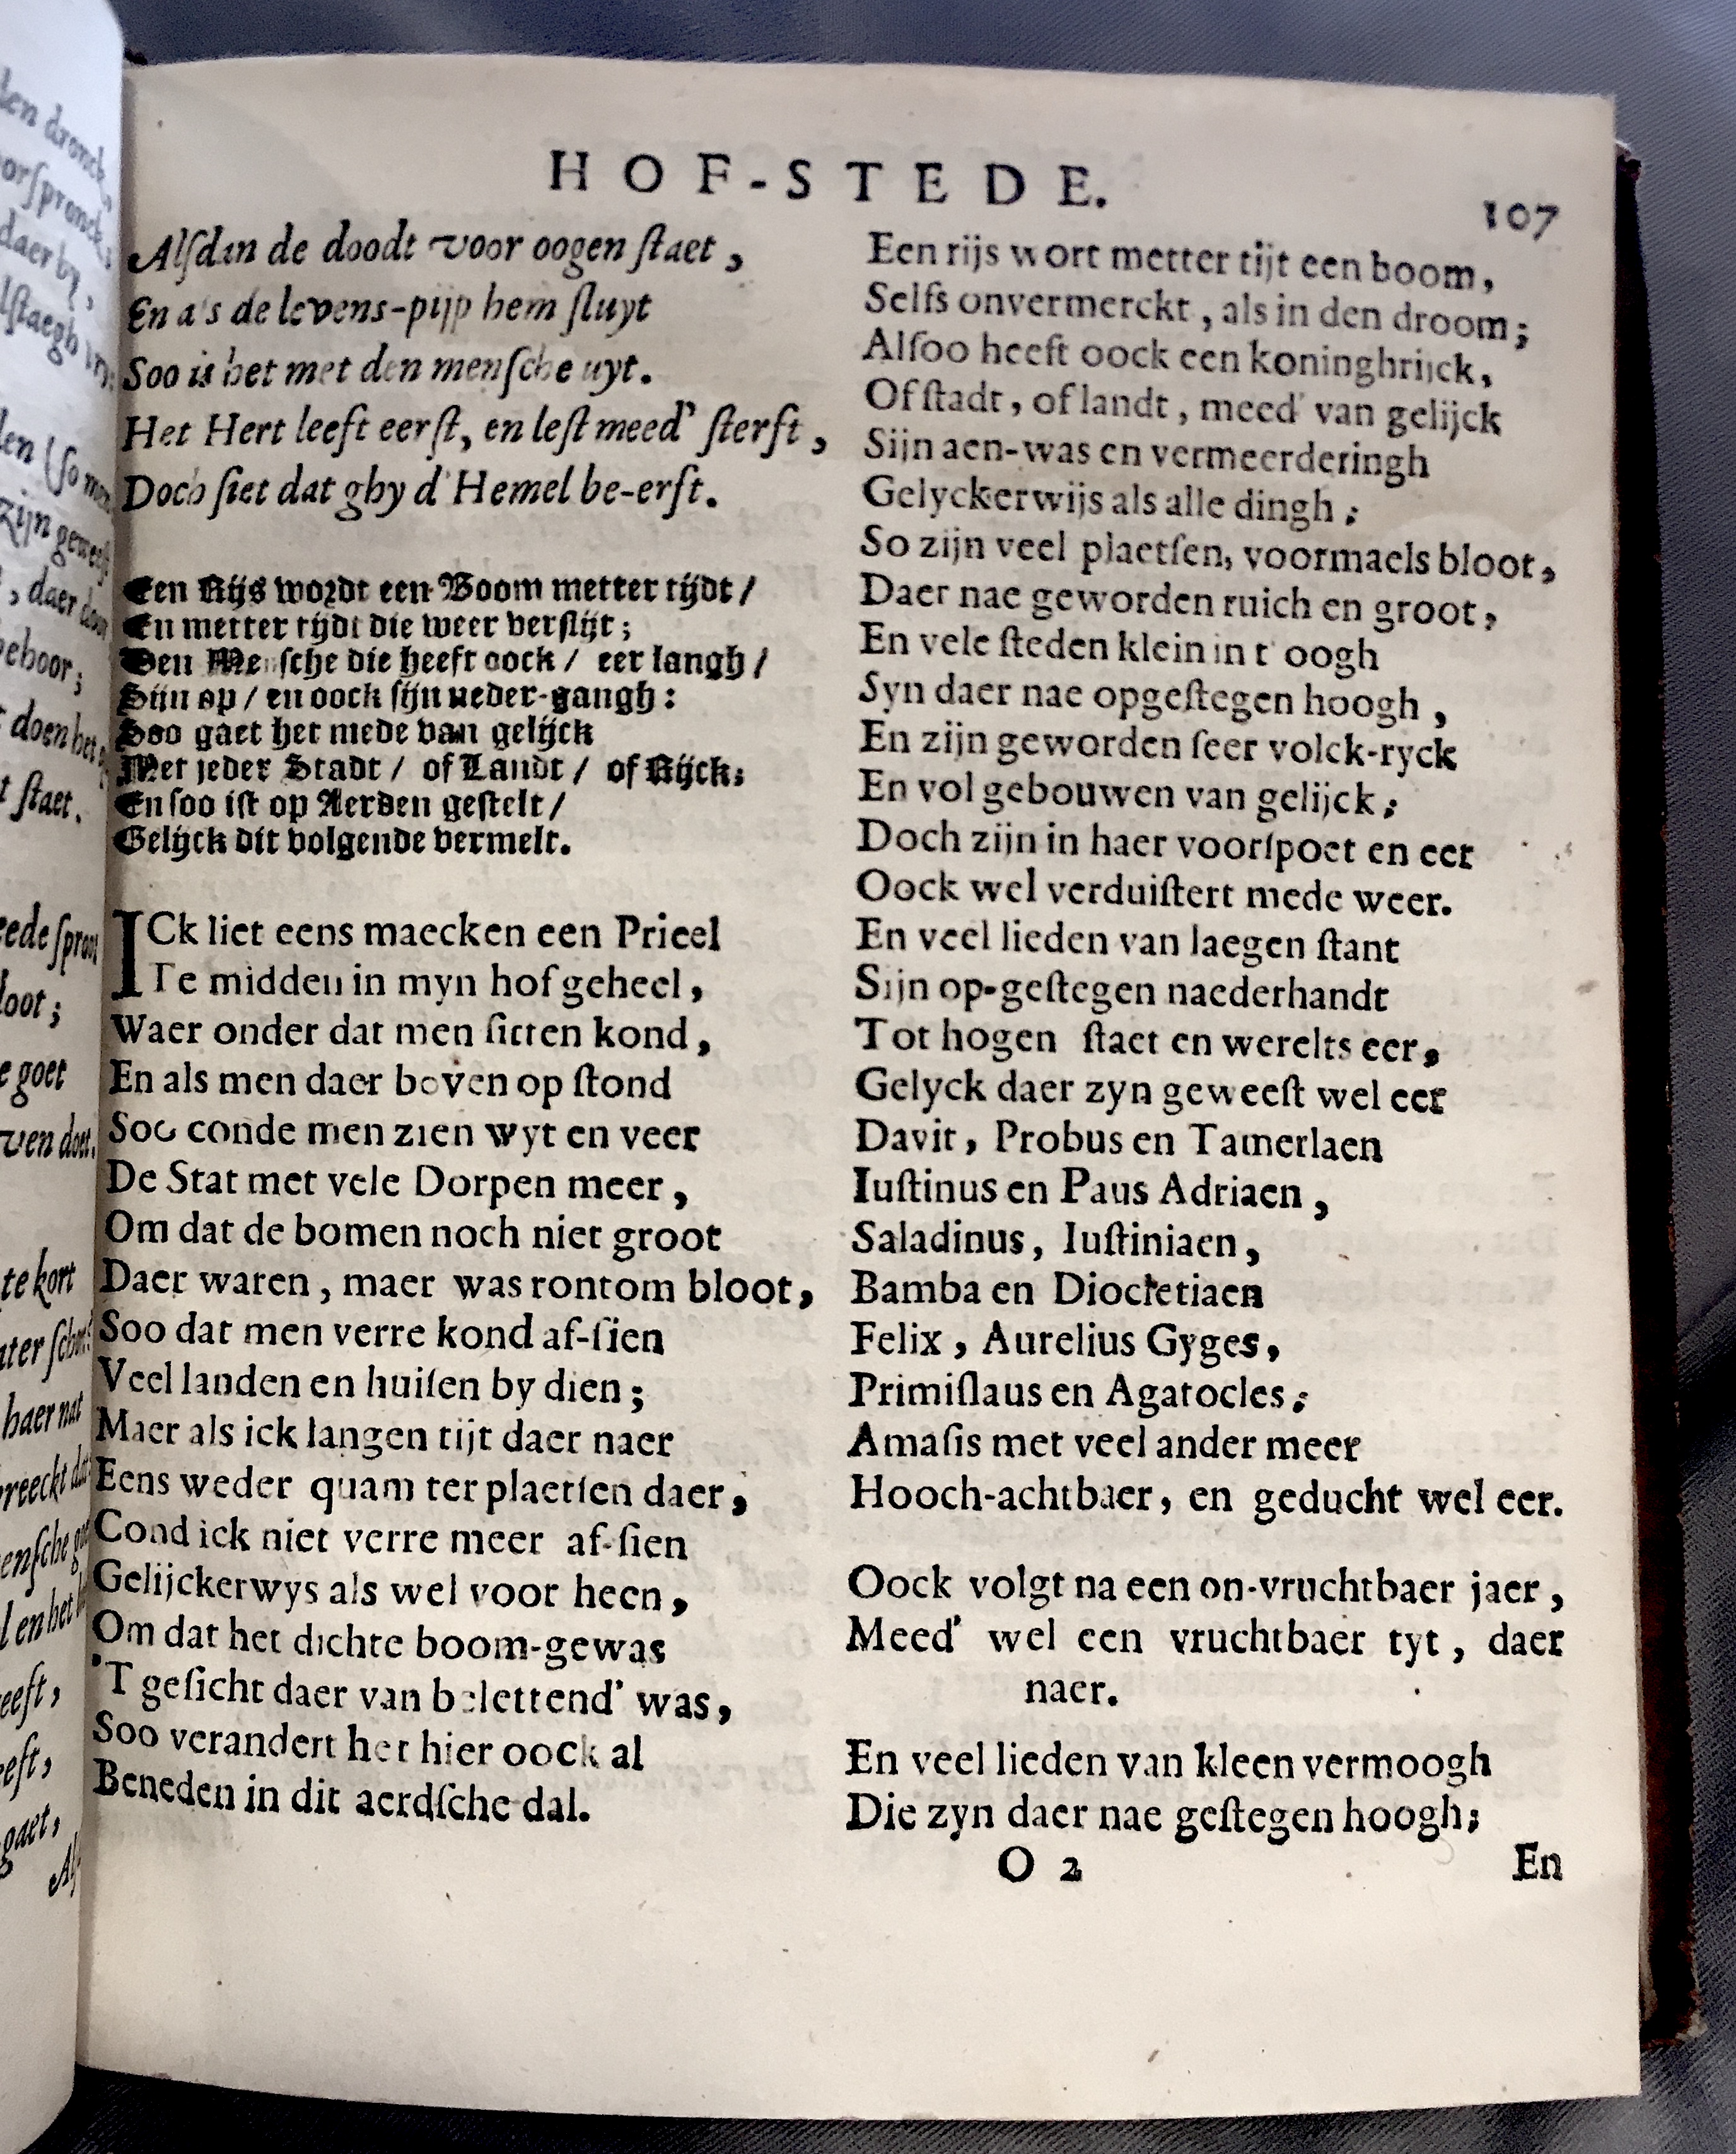 HOF-STEDE.
107
Alſdan de doodt voor oogen ſtaet,
En a's de levens-pijp hem ſluyt
Soo is het met den menſche uyt.
Het Hert leeft eerſt, en leſt meed' ſterft,
Doch ſiet dat ghy d'Hemel be-erft.
Een Rijs wordt een Boom metter tijdt /
En metter tijdt die weer verſlijt;
Den Menſche die heeft oock / eer langh /
Sijn op / en oock ſijn neder-gangh:
Soo gaet het mede van gelijck
Met jeder Stadt / of Landt / of Rijck;
En ſoo iſt op Aerden geſtelt /
Gelijck dit volgende vermelt.
ICk liet eens maecken een Prieel
Te midden in myn hof geheel,
Waer onder dat men ſitten kond,
En als men daer boven op ſtond
Soo conde men zien wyt en veer
De Stat met vele Dorpen meer,
Om dat de bomen noch niet groot
Daer waren, maer was rontom bloot,
Soo dat men verre kond af-ſien
Veel landen en huiſen by dien;
Maer als ick langen tijt daer naer
Eens weder quam ter plaetſen daer,
Cond ick niet verre meer af-ſien
Gelijckerwys als wel voor heen,
Om dat het dichte boom-gewas
'T geſicht daer van belettend' was,
Soo verandert het hier oock al
Beneden in dit aerdſche dal.
Een rijs wort metter tijt een boom,
Selfs onvermerckt, als in den droom;
Alſoo heeft oock een koninghrijck,
Of ſtadt, of landt, meed' van gelijck
Sijn aen-was en vermeerderingh
Gelyckerwijs als alle dingh;
So zijn veel plaetſen, voormaels bloot,
Daer nae geworden ruich en groot,
En vele ſteden klein in t' oogh
Syn daer nae opgeſtegen hoogh,
En zijn geworden ſeer volck-ryck
En vol gebouwen van gelijck;
Doch zijn in haer voorſpoet en eer
Oock wel verduiſtert mede weer.
En veel lieden van laegen ſtant
Sijn op-geſtegen naederhandt
Tot hogen ſtaet en werelts eer,
Gelyck daer zyn geweeſt wel eer
Davit, Probus en Tamerlaen
Iuſtinus en Paus Adriaen,
Saladinus, Iuſtiniaen,
Bamba en Diocletiaen
Felix, Aurelius Gyges,
Primiſlaus en Agatocles;
Amaſis met veel ander meer
Hooch-achtbaer, en geducht wel eer.
Oock volgt na een on-vruchtbaer jaer,
Meed' wel een vruchtbaer tyt, daer
naer.
En veel lieden van kleen vermoogh
Die zyn daer nae geſtegen hoogh;
O 2
En